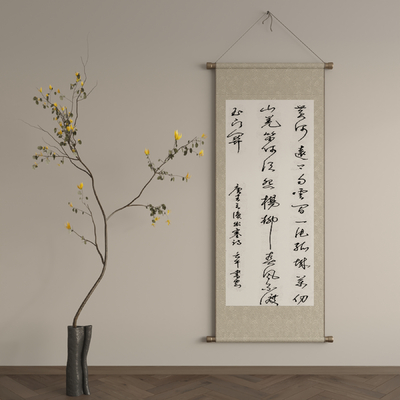 黄河遠上白雲間一片孤城萬仞
山羌笛何須怨楊柳春風不度
玉门関
唐王之渙出塞詩